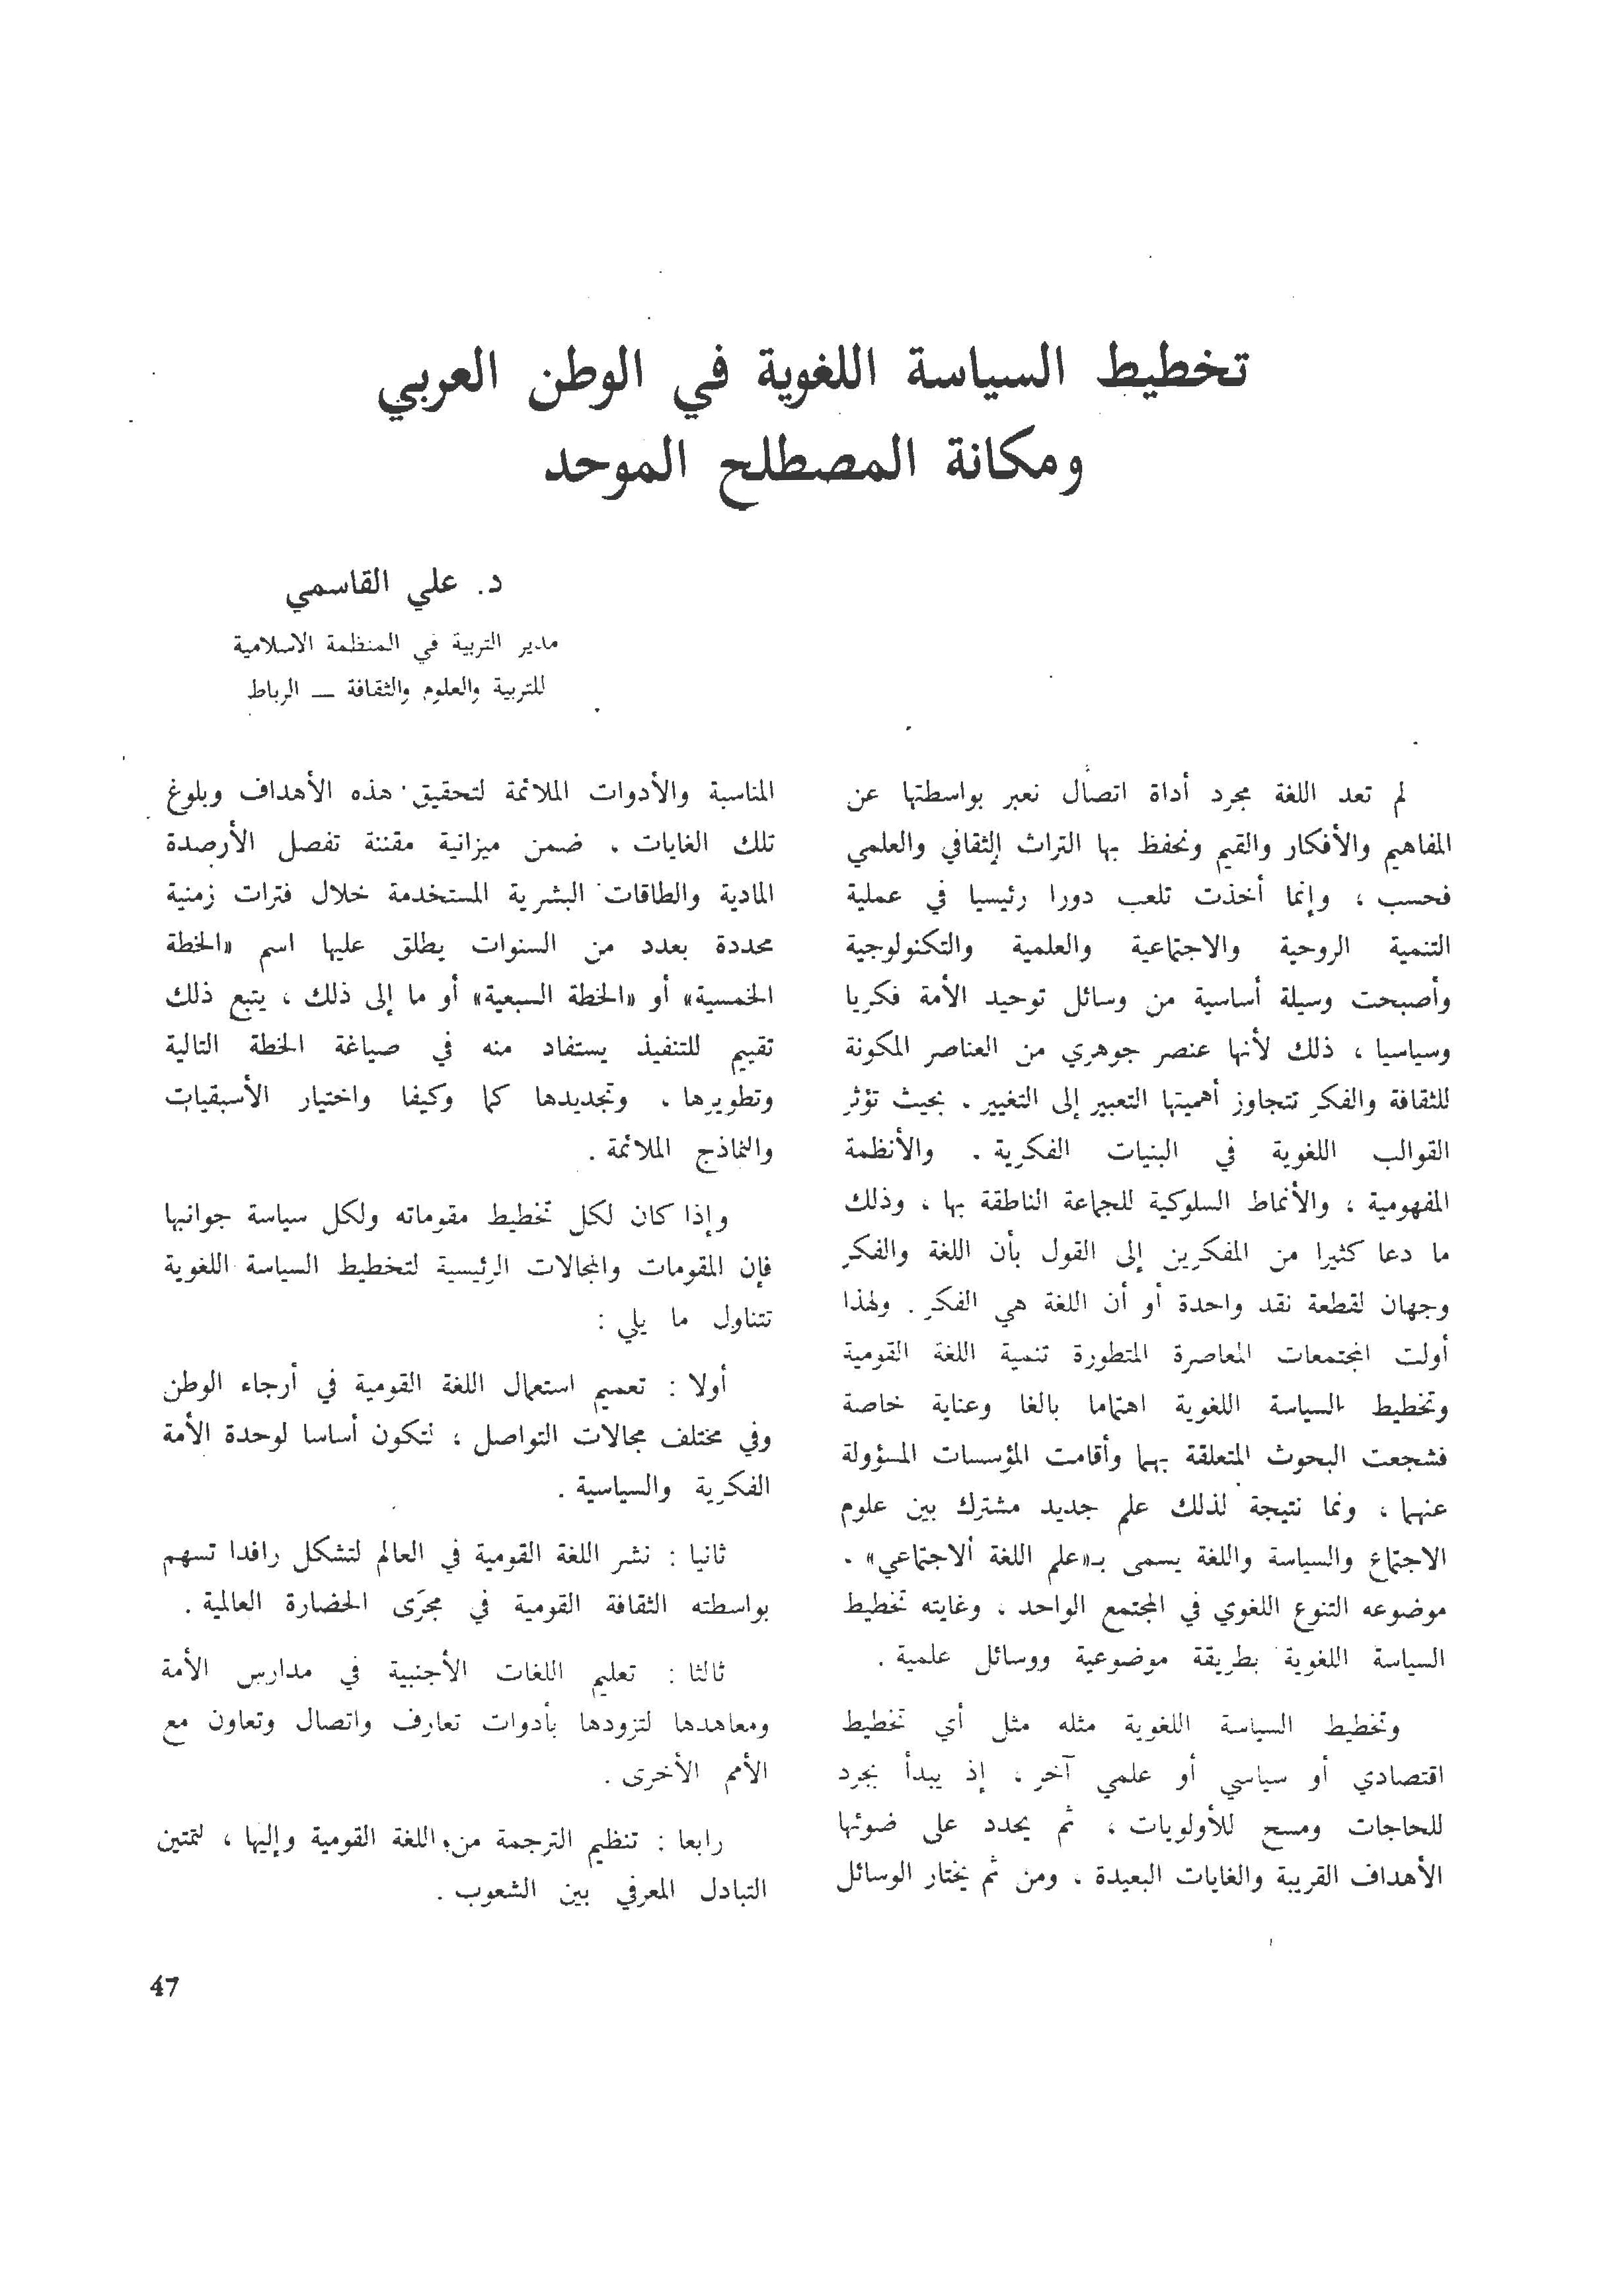 تخطيط السياسة اللغوية في الوطن العربي
ومكانة المصطلح الموحد
د. علي القاسمي
مدير التربية في المنظمة الاسلامية
للتربية والعلوم والثقافة — الرباط
لم تعد اللغة مجرد أداة اتصال نعبر بواسطتها عن
المفاهيم والأفكار والقيم ونحفظ بها التراث الثقافي والعلمي
فحسب ، وإنما أخذت تلعب دورا رئيسيا في عملية
التنمية الروحية والاجتماعية والعلمية والتكنولوجية
وأصبحت وسيلة أساسية من وسائل توحيد الأمة فكريا
وسياسيا ، ذلك لأنها عنصر جوهري من العناصر المكونة
للثقافة والفكر تتجاوز أهميتها التعبير إلى التغيير . بحيث تؤثر
القوالب اللغوية في البنيات الفكرية . والأنظمة
المفهومية ، والأنماط السلوكية للجماعة الناطقة بها ، وذلك
ما دعا كثيرا من المفكرين إلى القول بأن اللغة والفكر
وجهان لقطعة نقد واحدة أو أن اللغة هي الفكر . ولهذا
أولت المجتمعات المعاصرة المتطورة تنمية اللغة القومية
وتخطيط السياسة اللغوية اهتماما بالغا وعناية خاصة
فشجعت البحوث المتعلقة بهما وأقامت المؤسسات المسؤولة
عنهما ، ونما نتيجة لذلك علم جديد مشترك بين علوم
الاجتماع والسياسة واللغة يسمى بـ«علم اللغة ألاجتماعي» .
موضوعه التنوع اللغوي في المجتمع الواحد . وغايته تخطيط
السياسة اللغوية بطريقة موضوعية ووسائل علمية .
وتخطيط السياسة اللغوية مثله مثل أي تخطيط
اقتصادي أو سياسي أو علمي آخر ، إذ يبدأ بجرد
للحاجات ومسح للأولويات ، ثم يحدد على ضوئها
الأهداف القريبة والغايات البعيدة ، ومن ثم يختار الوسائل
المناسبة والأدوات الملائمة لتحقيق هذه الأهداف وبلوغ
تلك الغايات . ضمن ميزانية مقننة تفصل الأرصدة
المادية والطاقات البشرية المستخدمة خلال فترات زمنية
محددة بعدد من السنوات يطلق عليها اسم «الخطة
الخمسية» أو «الخطة السبعية» أو ما إلى ذلك ، يتبع ذلك
تقييم للتنفيذ يستفاد منه في صياغة الخطة التالية
وتطويرها . وتجديدها كما وكيفا واختيار الأسبقيات
والنماذج الملائمة .
وإذا كان لكل تخطيط مقوماته ولكل سياسة جوانبها
فإن المقومات والمجالات الرئيسية لتخطيط السياسة اللغوية
تتناول ما يلي :
أولا : تعميم استعمال اللغة القومية في أرجاء الوطن
وفي مختلف مجالات التواصل ، لتكون أساسا لوحدة الأمة
الفكرية والسياسية .
ثانيا : نشر اللغة القومية في العالم لتشكل رافدا تسهم
بواسطته الثقافة القومية في مجرَى الحضارة العالمية .
ثالثا : تعليم اللغات الأجنبية في مدارس الأمة
ومعاهدها لتزودها بأدوات تعارف واتصال وتعاون مع
الأمم الأخرى .
رابعا : تنظيم الترجمة من اللغة القومية وإليها ، لتمتين
التبادل المعرفي بين الشعوب .
47